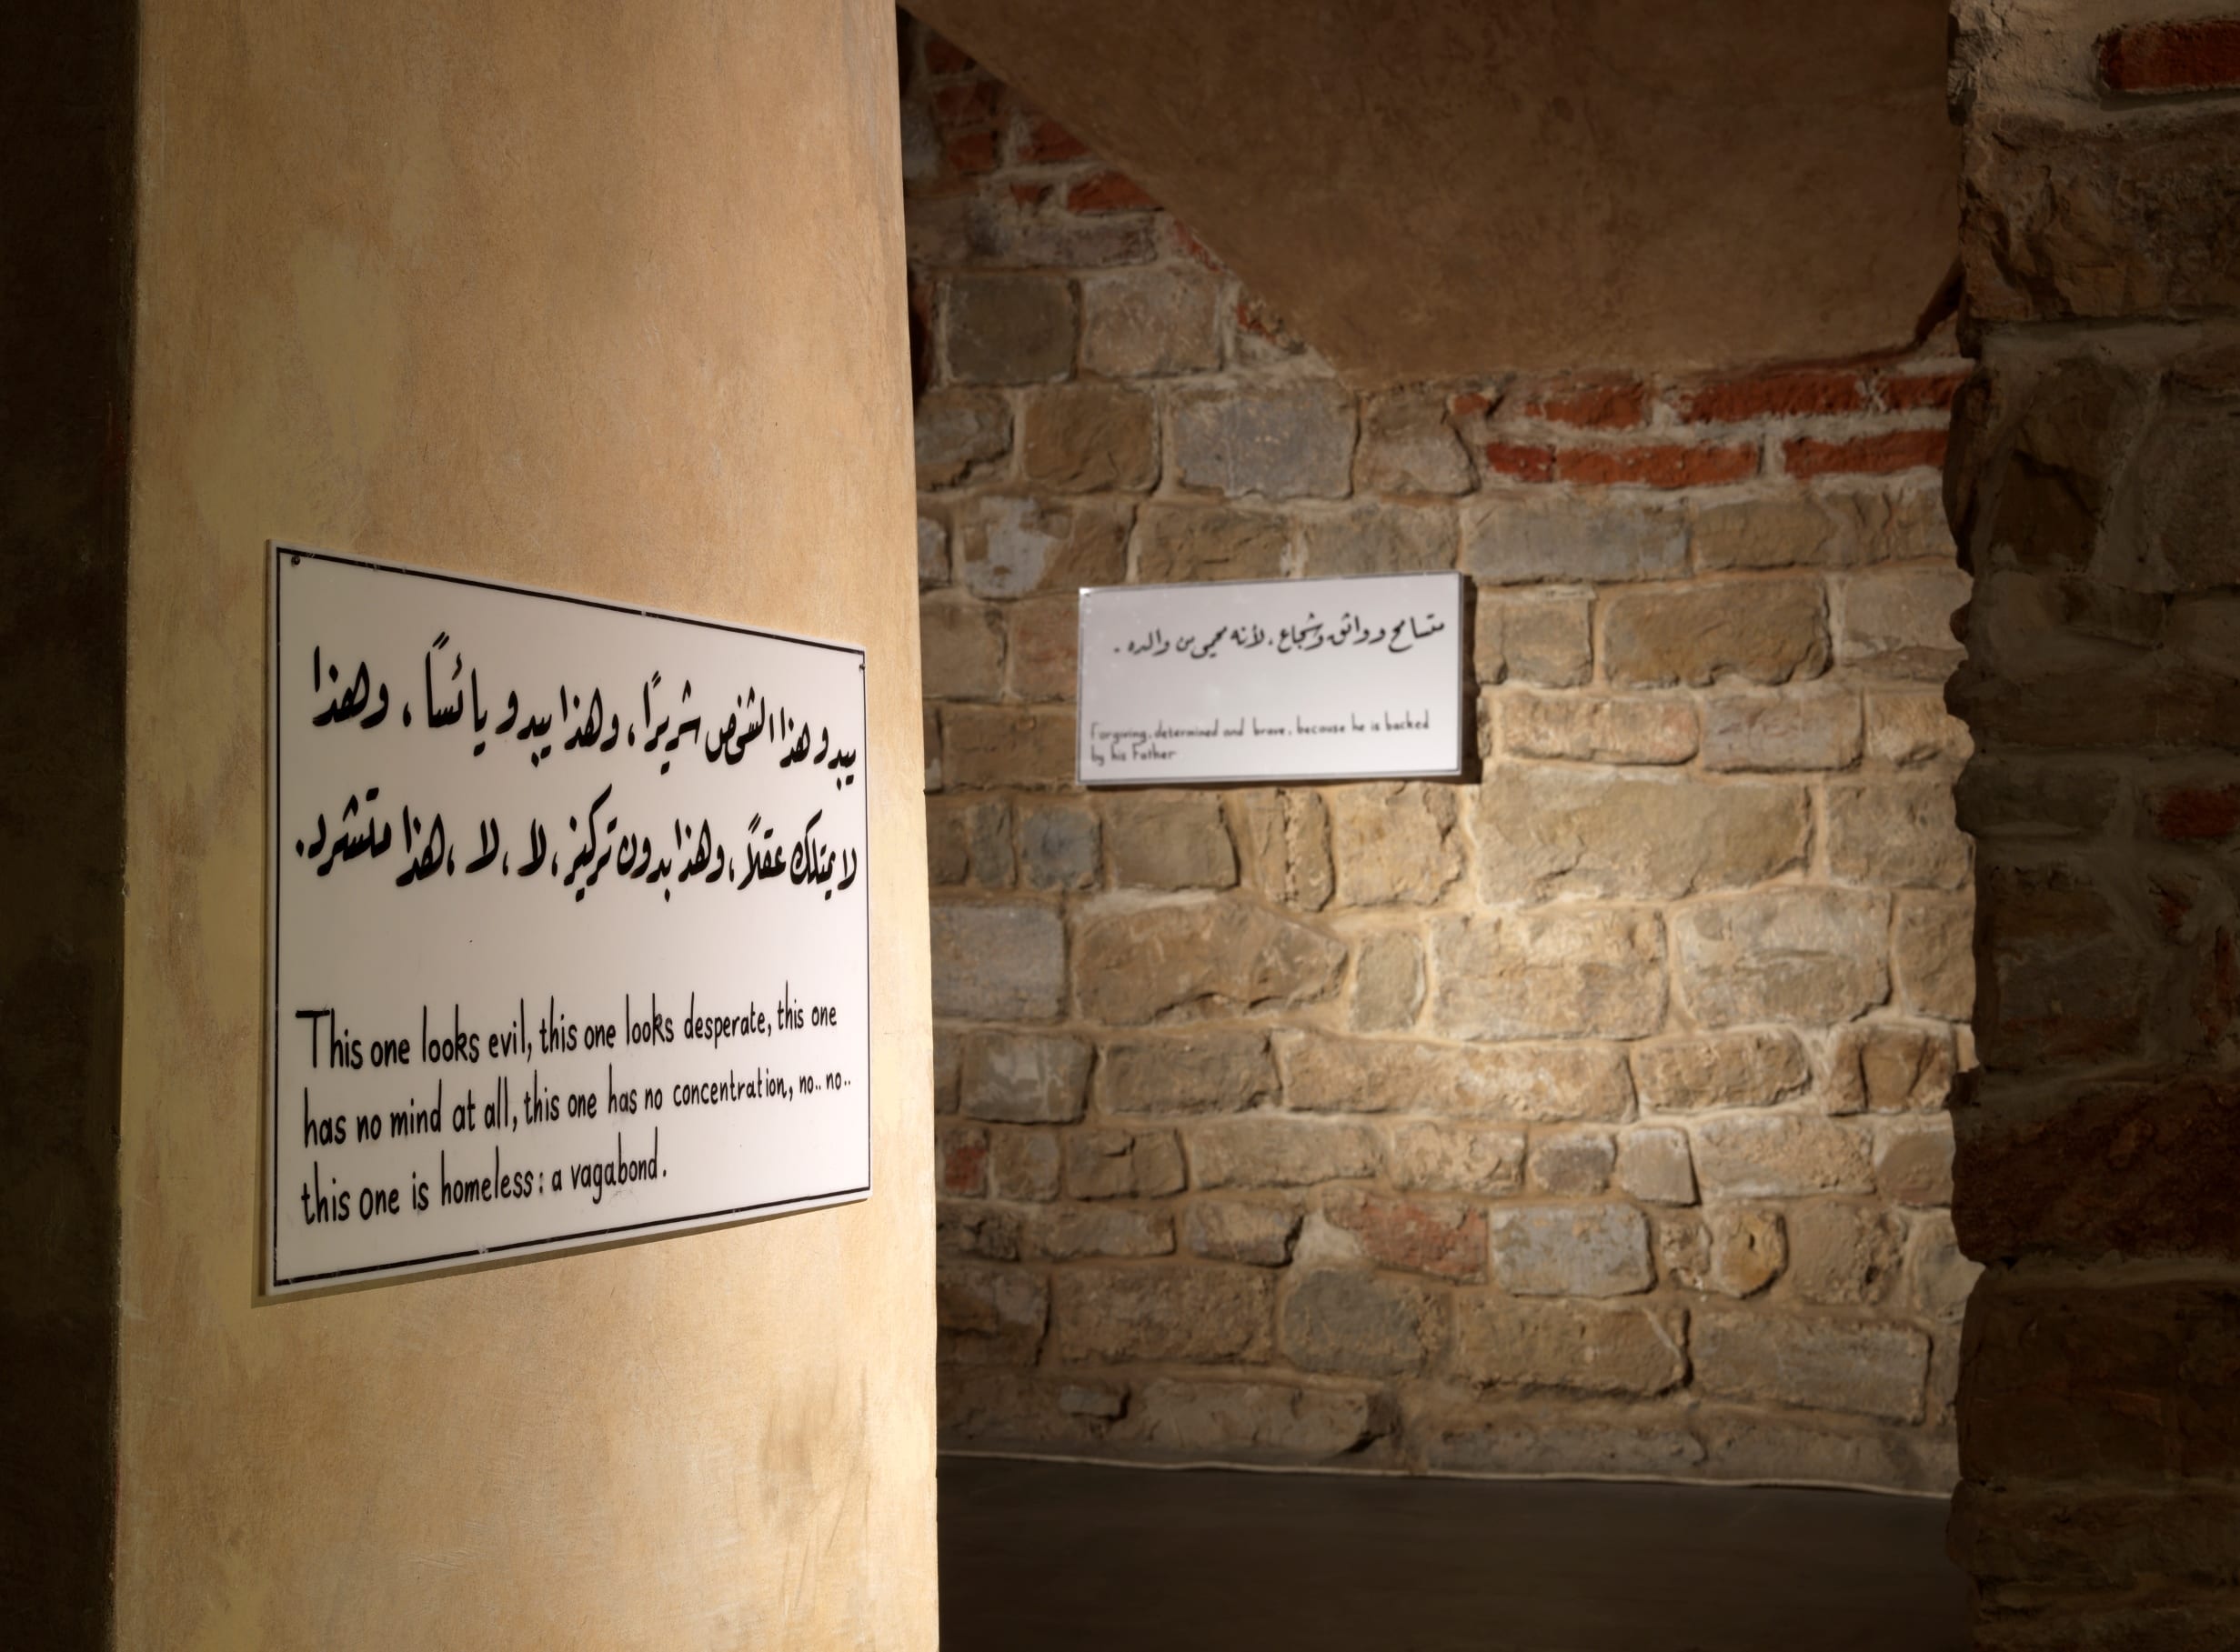 يبدو هذا الشخص شريرًا، وهذا يبدو يائسًا، وهذا
لا يمتلك عقلاً، وهذا بدون تركيز، لا، لا، هذا متشرد.
This one looks evil, this one looks desperate, this one
has no mind at all, this one has no concentration, no.. no..
this one is homeless: a vagabond.
متسامح وواثق وشجاع، لأنه محمي من والده.
Forgiving, determined and brave, because he is backed
by his Father